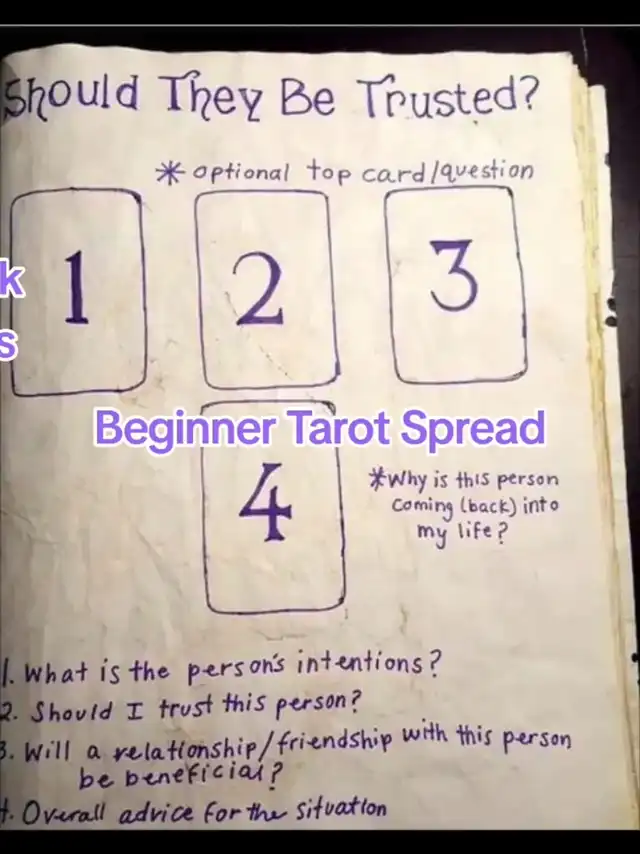 Should They Be Trusted?
* optional top card/question
1
2
3
k
s
Beginner Tarot Spread
4
*Why is this person
coming (back) into
my life?
1. What is the person's intentions?
2. Should I trust this person?
3. Will a relationship/friendship with this person
be beneficial?
4. Overall advice for the situation